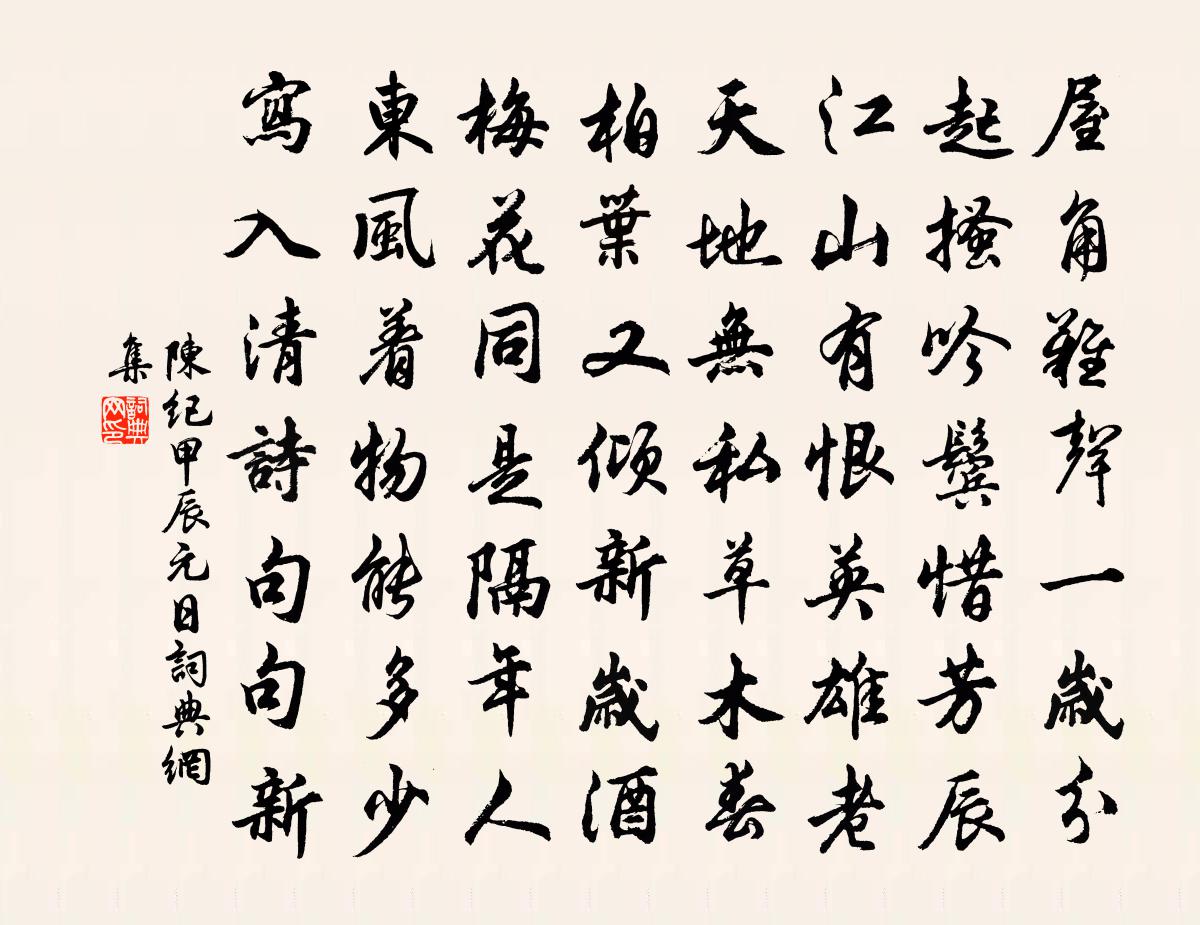 屋角雞聲一歲分
起搔吟鬢惜芳辰
江山有恨英雄老
天地無私草木春
柏葉又傾新歲酒
梅花同是隔年人
東風着物能多少
寫入清詩句句新
陳紀甲辰元日詞典網
集
詞典
网印